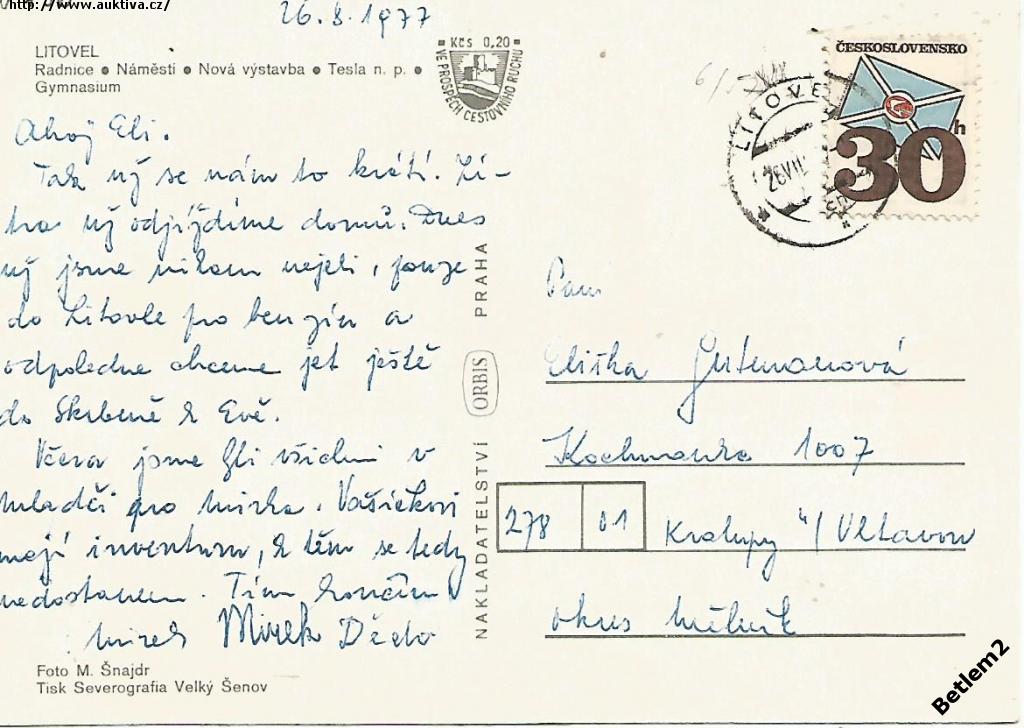 http://www.auktiva.cz/
26.8.1977
LITOVEL
Radnice • Náměstí • Nová výstavba • Tesla n. p. •
Gymnasium
Kčs 0,20
VE PROSPĚCH CESTOVNÍHO RUCHU
Ahoj Eli.
Tak už se nám to krátí. Zí-
tra už odjíždíme domů. Dnes
už jsme nikam nejeli, pouze
do Litovle pro benzín a
odpoledne chceme jet ještě
do Skrbeně k Evě.
Včera jsme byli všichni v
mladči pro mirka. Vašíčkovi
mají inventuru, k těm se tedy
nedostanem. Tím končím
mirek Mirek Děda
Foto M. Šnajdr
Tisk Severografia Velký Šenov
NAKLADATELSTVÍ ORBIS PRAHA
ČESKOSLOVENSKO
30h
LITOVEL
Paní
Eliška Gutmanová
1007
278 01 Kralupy n/Vltavou
okres mělník
Betlem2